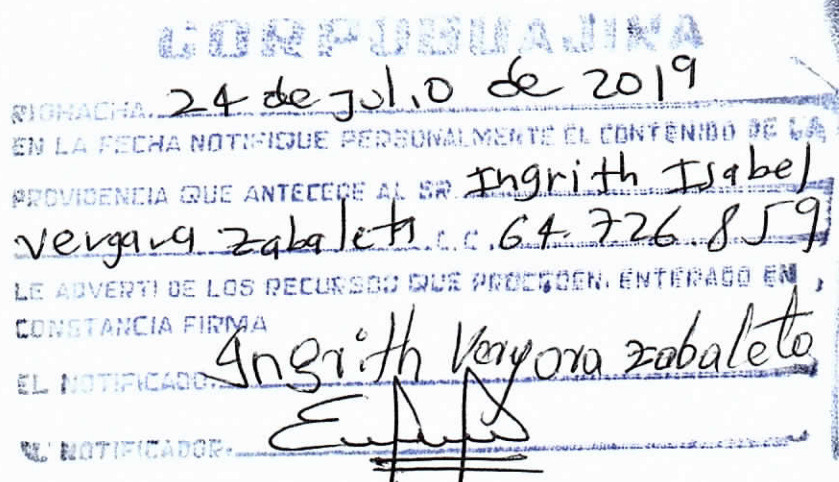 CORPOGUAJIRA
RIOHACHA, 24 de julio de 2019
EN LA FECHA NOTIFIQUE PERSONALMENTE EL CONTENIDO DE LA
PROVIDENCIA QUE ANTECEDE AL SR. Ingrith Isabel
Vergara Zabaleta C.C. 64.726.859
LE ADVERTI DE LOS RECURSOS QUE PROCEDEN. ENTERADO EN
CONSTANCIA FIRMA
EL NOTIFICADO. Ingrith Vergara Zabaleta
EL NOTIFICADOR.